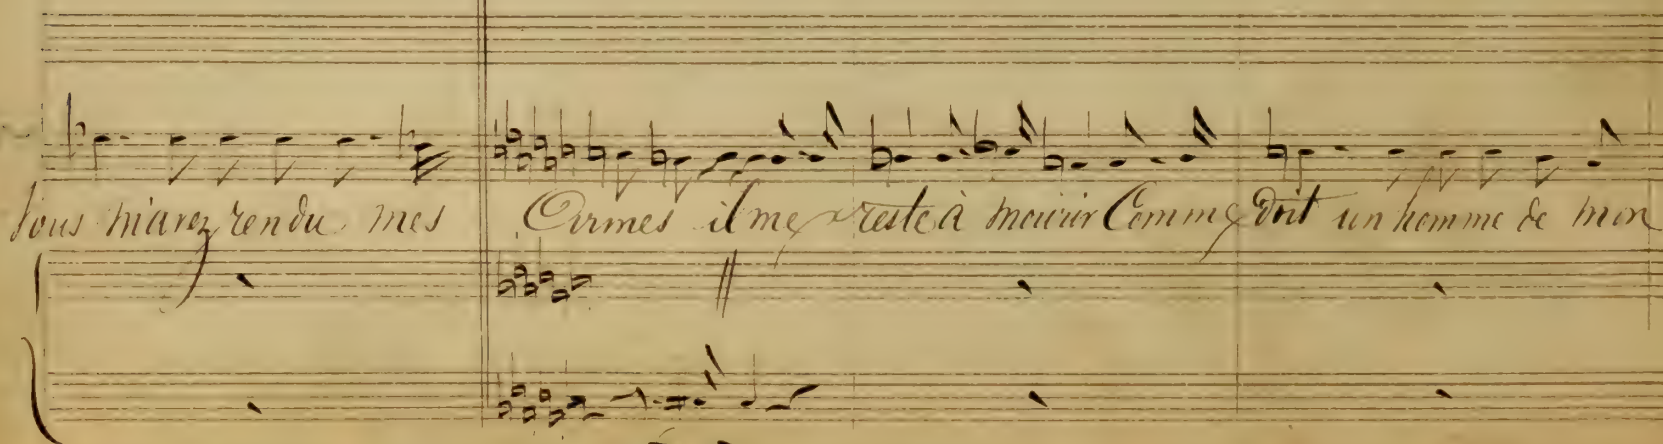 Vous m'avez rendu mes Armes il me reste à mourir Comme doit un homme de mon